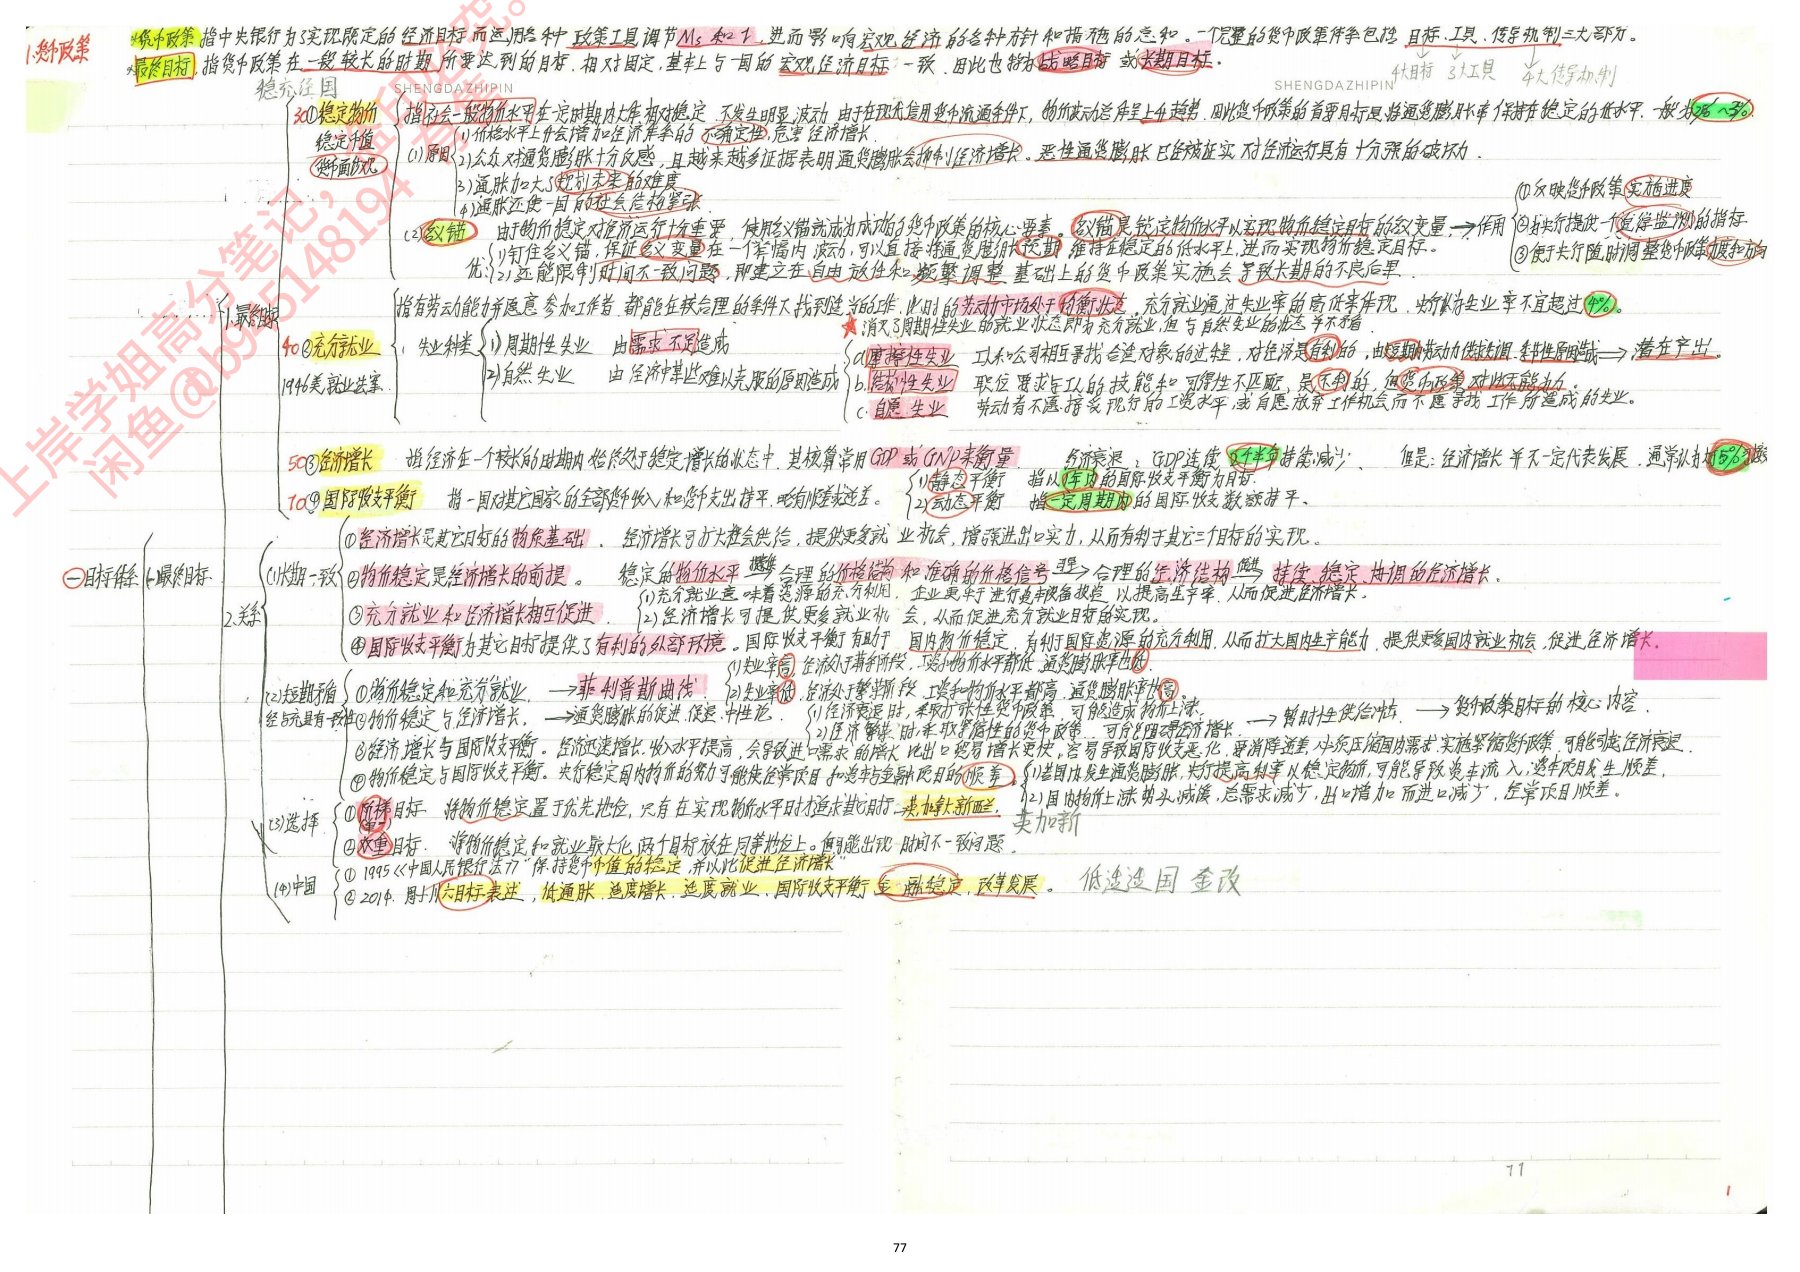 1.货币政策
*货币政策 指中央银行为了实现既定的经济目标而运用各种政策工具调节Ms和I,进而影响宏观经济的各种方针和措施的总和。一个完整的货币政策体系包括 目标、工具、传导机制三大部分。
4大目标 3大工具 4大传导机制
*最终目标,指货币政策在一段较长的时期所要达到的目标,相对固定,基本上与一国的宏观经济目标一致,因此也称为战略目标或长期目标。
稳充经国
SHENGDAZHIPIN
SHENGDAZHIPIN
一 目标体系
一.最终目标
1.最终目标
30①稳定物价
稳定币值
货币面价观
指社会一般物价水平在一定时期内大体相对稳定,不发生明显波动,由于在现代信用货币流通条件下,物价波动总体呈上升趋势,因此货币政策的首要目标是将通货膨胀率保持在稳定的低水平,一般为2%~3%.
(1)原因
1)价格水平上升会增加经济体系的不确定性,危害经济增长.
2)公众对通货膨胀十分反感,且越来越多证据表明通货膨胀会抑制经济增长。恶性通货膨胀已经被证实对经济运行具有十分强的破坏力.
3)通胀加大了规划未来的难度
4)通胀还使一国的社会结构紧张.
(2)名义锚
由于物价稳定对经济运行十分重要,使用名义锚就成为成功的货币政策的核心要素。名义锚是锁定物价水平以实现物价稳定目标的名义变量,→作用
①反映货币政策实施进度
②为央行提供一个连续监测的指标
③便于央行随时调整货币政策力度和方向
优:
1)钉住名义锚,保证名义变量在一个窄幅内波动,可以直接将通货膨胀预期维持在稳定的低水平上,进而实现物价稳定目标。
2)还能限制时间不一致问题,即建立在自由放任和频繁调整基础上的货币政策实施会导致长期的不良后果.
40②充分就业
1946美就业法案.
指有劳动能力并愿意参加工作者,都能在较合理的条件下找到适当的工作,此时的劳动市场处于均衡状态,充分就业通过失业率的高低来体现,央行认为失业率不宜超过4%.
★消灭了周期性失业的就业状态即为充分就业,但与自然失业的状态并不矛盾.
失业种类
1)周期性失业 由需求不足造成
2)自然失业 由经济中某些难以克服的原因造成
a.摩擦性失业 工人和公司相互寻找合适对象的过程,对经济是有利的,由短期劳动力供求失调、季节性原因造成→潜在产出.
b.结构性失业 职位要求与工人的技能和可得性不匹配,是不利的,但货币政策对此无能为力.
c.自愿失业 劳动者不愿接受现行的工资水平,或自愿放弃工作机会而不愿寻找工作所造成的失业。
50③经济增长 指经济在一个较长的时期内始终处于稳定增长的状态中,其核算常用GDP或GNP来衡量 经济衰退:GDP连续2个半年持续减少. 但是:经济增长并不一定代表发展,通常认为5%
70④国际收支平衡 指一国对其它国家的全部货币收入和货币支出持平,略有顺差或逆差。
1)静态平衡 指以1年内的国际收支平衡为目标.
2)动态平衡 指一定周期内的国际收支数额持平。
2.关系
(1)长期一致
①经济增长是其它目标的物质基础. 经济增长可扩大社会供给,提供更多就业机会,增强进出口实力,从而有利于其它三个目标的实现。
②物价稳定是经济增长的前提。 稳定的物价水平→合理的价格结构和准确的价格信号→合理的经济结构→持续、稳定、协调的经济增长.
③充分就业和经济增长相互促进
1)充分就业意味着资源的充分利用,企业更乐于进行资本设备投资,以提高生产率,从而促进经济增长。
2)经济增长可提供更多就业机会,从而促进充分就业目标的实现。
④国际收支平衡为其它目标提供了有利的外部环境。国际收支平衡有助于国内物价稳定,有利于国际资源的充分利用,从而扩大国内生产能力,提供更多国内就业机会,促进经济增长.
(2)短期矛盾
经与充具有一致性
①物价稳定和充分就业. →菲利普斯曲线.
1)失业率高,经济处于萧条阶段,工资和物价水平都低,通货膨胀率也低.
2)失业率低,经济处于繁荣阶段,工资和物价水平都高,通货膨胀率也高。
②物价稳定与经济增长. →通货膨胀的促进、促退、中性论.
1)经济衰退时,采取扩张性货币政策,可能造成物价上涨.
2)经济繁荣时,采取紧缩性的货币政策,可能阻碍经济增长.
→暂时性供给冲击. →货币政策目标的核心内容.
③经济增长与国际收支平衡。经济迅速增长,收入水平提高,会导致进口需求的增长比出口贸易增长更快,容易导致国际收支恶化,要消除逆差,必须压缩国内需求,实施紧缩货币政策,可能引起经济衰退.
④物价稳定与国际收支平衡。央行稳定国内物价的努力可能使经常项目和资本与金融项目的顺差.
1)若国内发生通货膨胀,央行提高利率以稳定物价,可能导致资本流入,资本项目发生顺差.
2)国内物价上涨势头减缓,总需求减少,出口增加而进口减少,经常项目顺差。
(3)选择
①阶梯目标. 将物价稳定置于优先地位,只有在实现物价水平时才追求其它目标.英.加拿大.新西兰. 英加新
②双重目标. 将物价稳定和就业最大化两个目标放在同等地位上。但可能出现时间不一致问题.
(4)中国
①1995《中国人民银行法》"保持货币币值的稳定,并以此促进经济增长"
②2014. 周小川六目标表述,低通胀、适度增长、适度就业、国际收支平衡、金融稳定、改革发展。 低适适国 金改
上岸学姐高分笔记,
闲鱼@b95148194
77
1
77